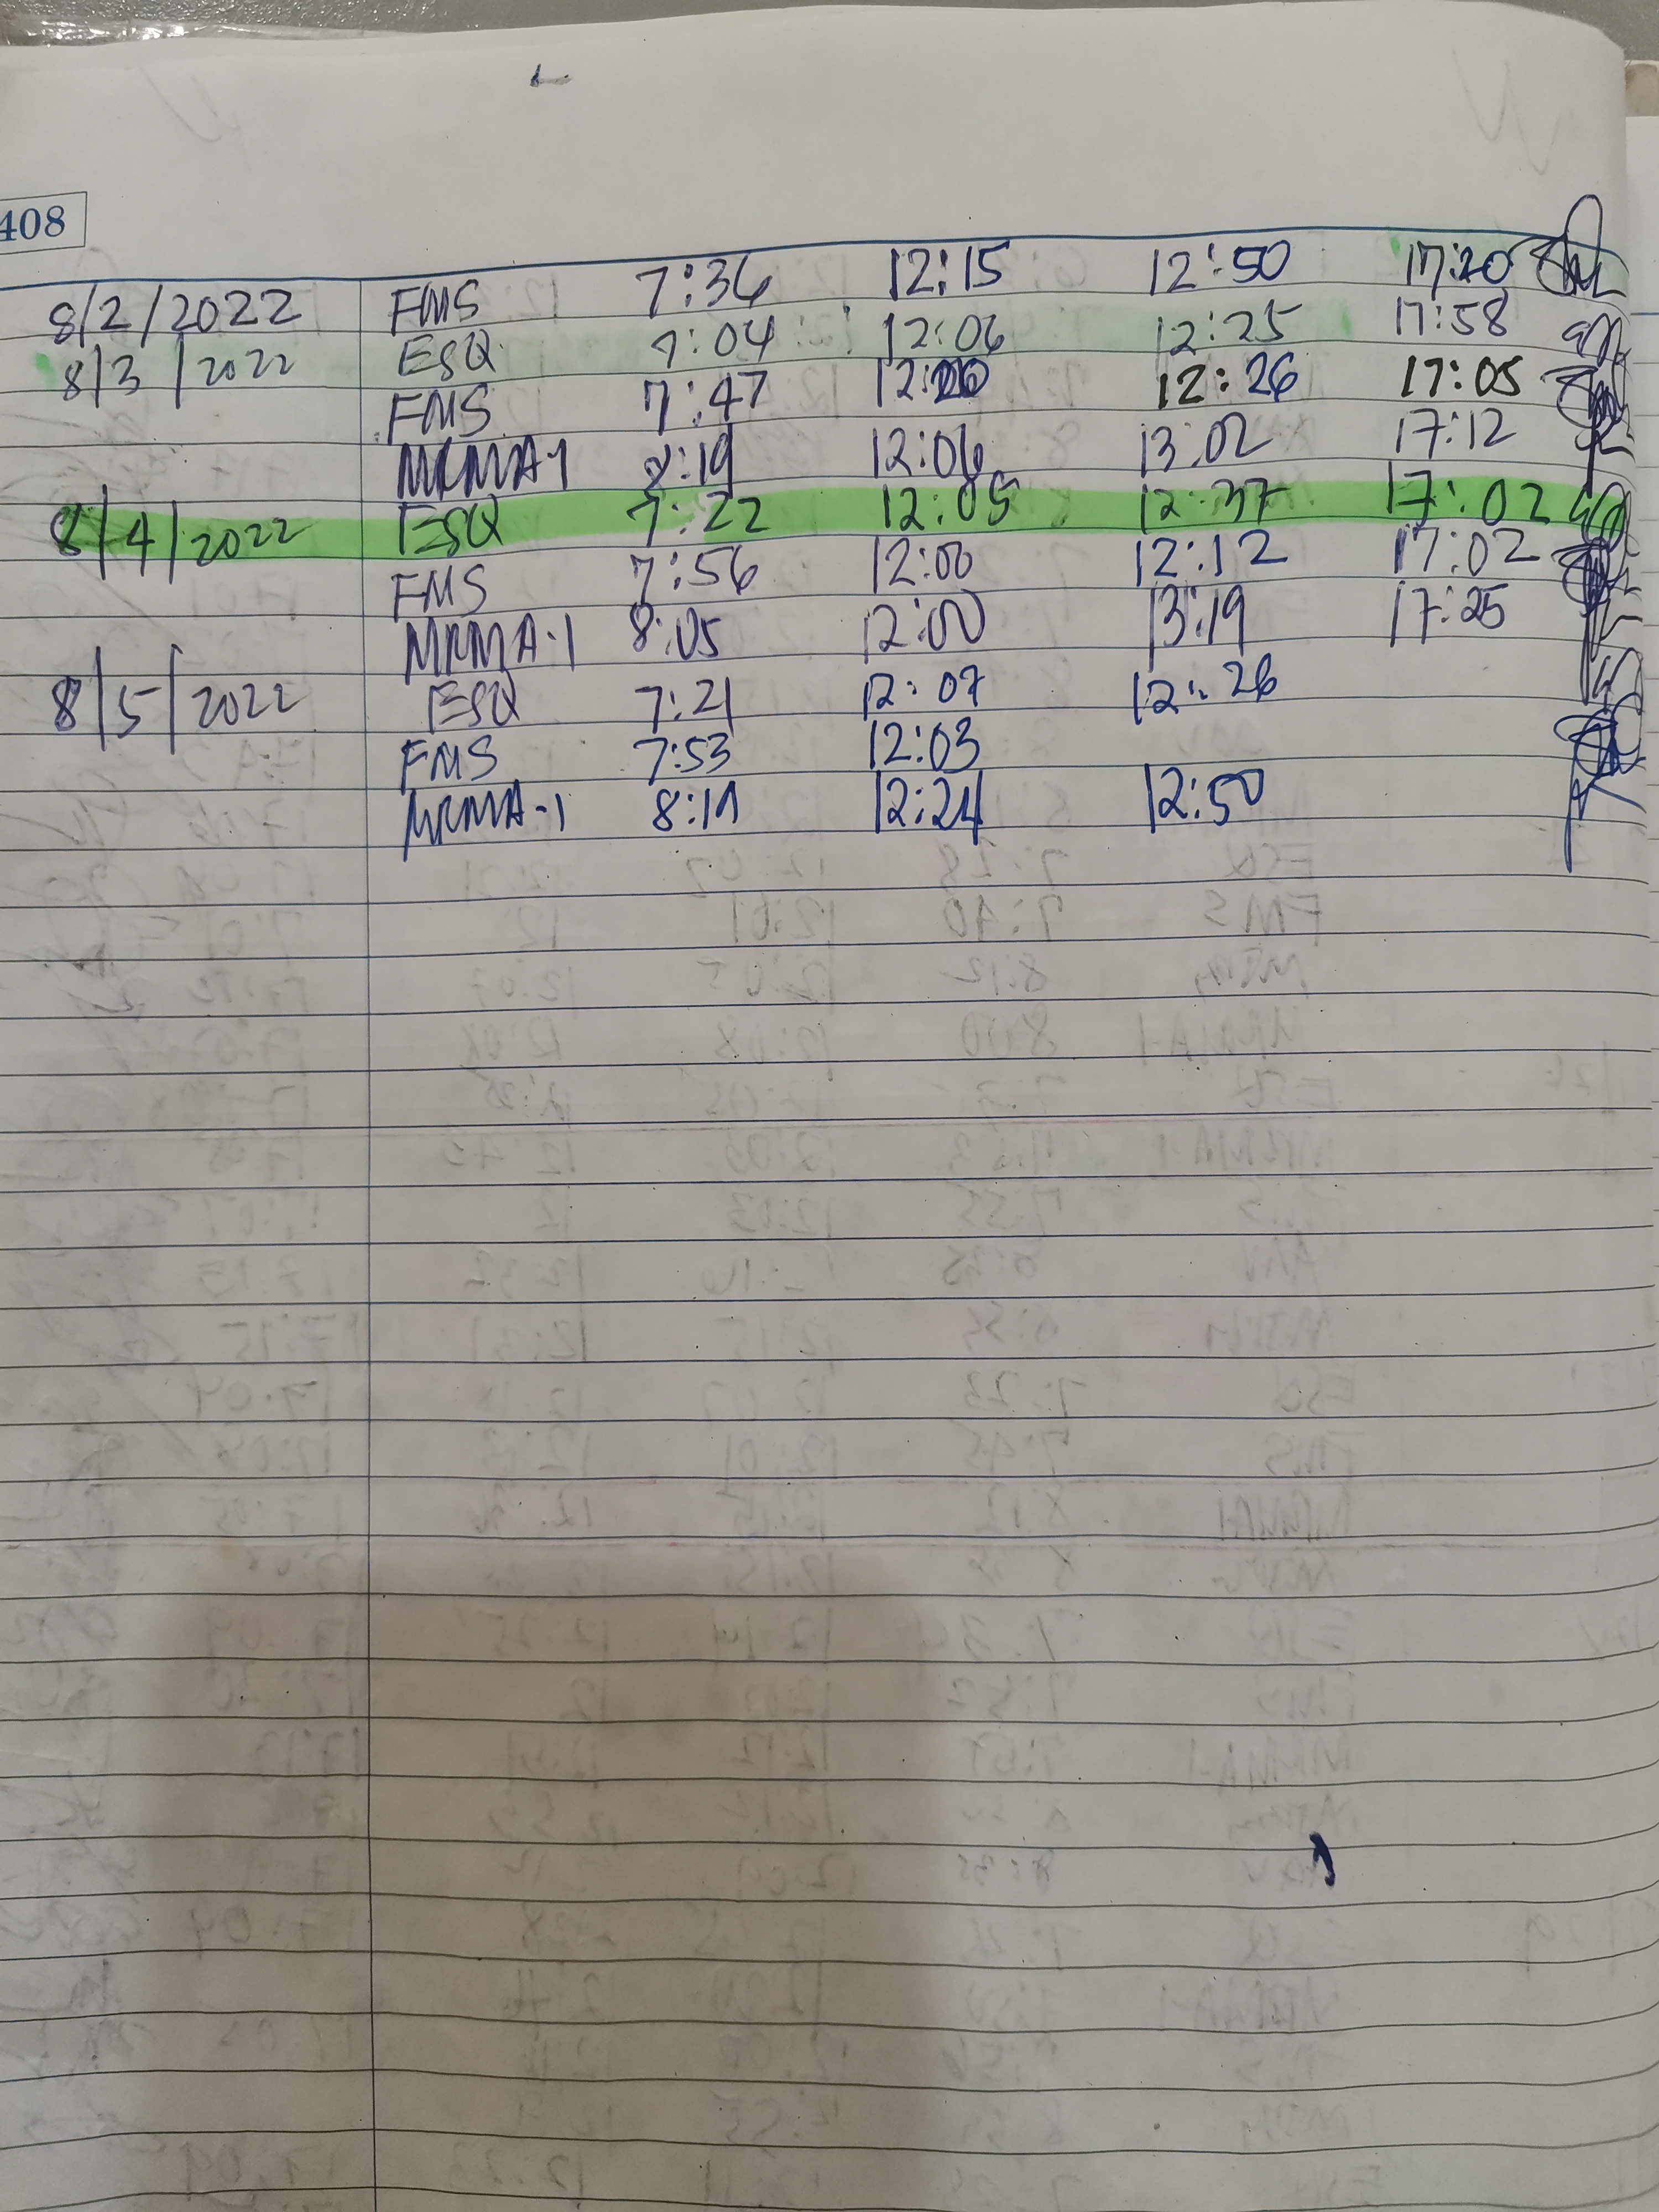 408
8/2/2022 FMS 7:36 12:15 12:50 17:20
8/3/2022 ESQ 7:04 12:06 12:25 17:58
FMS 7:47 12:26 17:05
MRMA-1 8:19 12:06 13:02 17:12
8/4/2022 ESQ 7:22 12:05 12:37 17:02
FMS 7:56 12:00 12:12 17:02
MRMA-1 8:05 12:00 13:19 17:25
8/5/2022 ESQ 7:21 12:07 12:26
FMS 7:53 12:03
MRMA-1 8:19 12:24 12:50